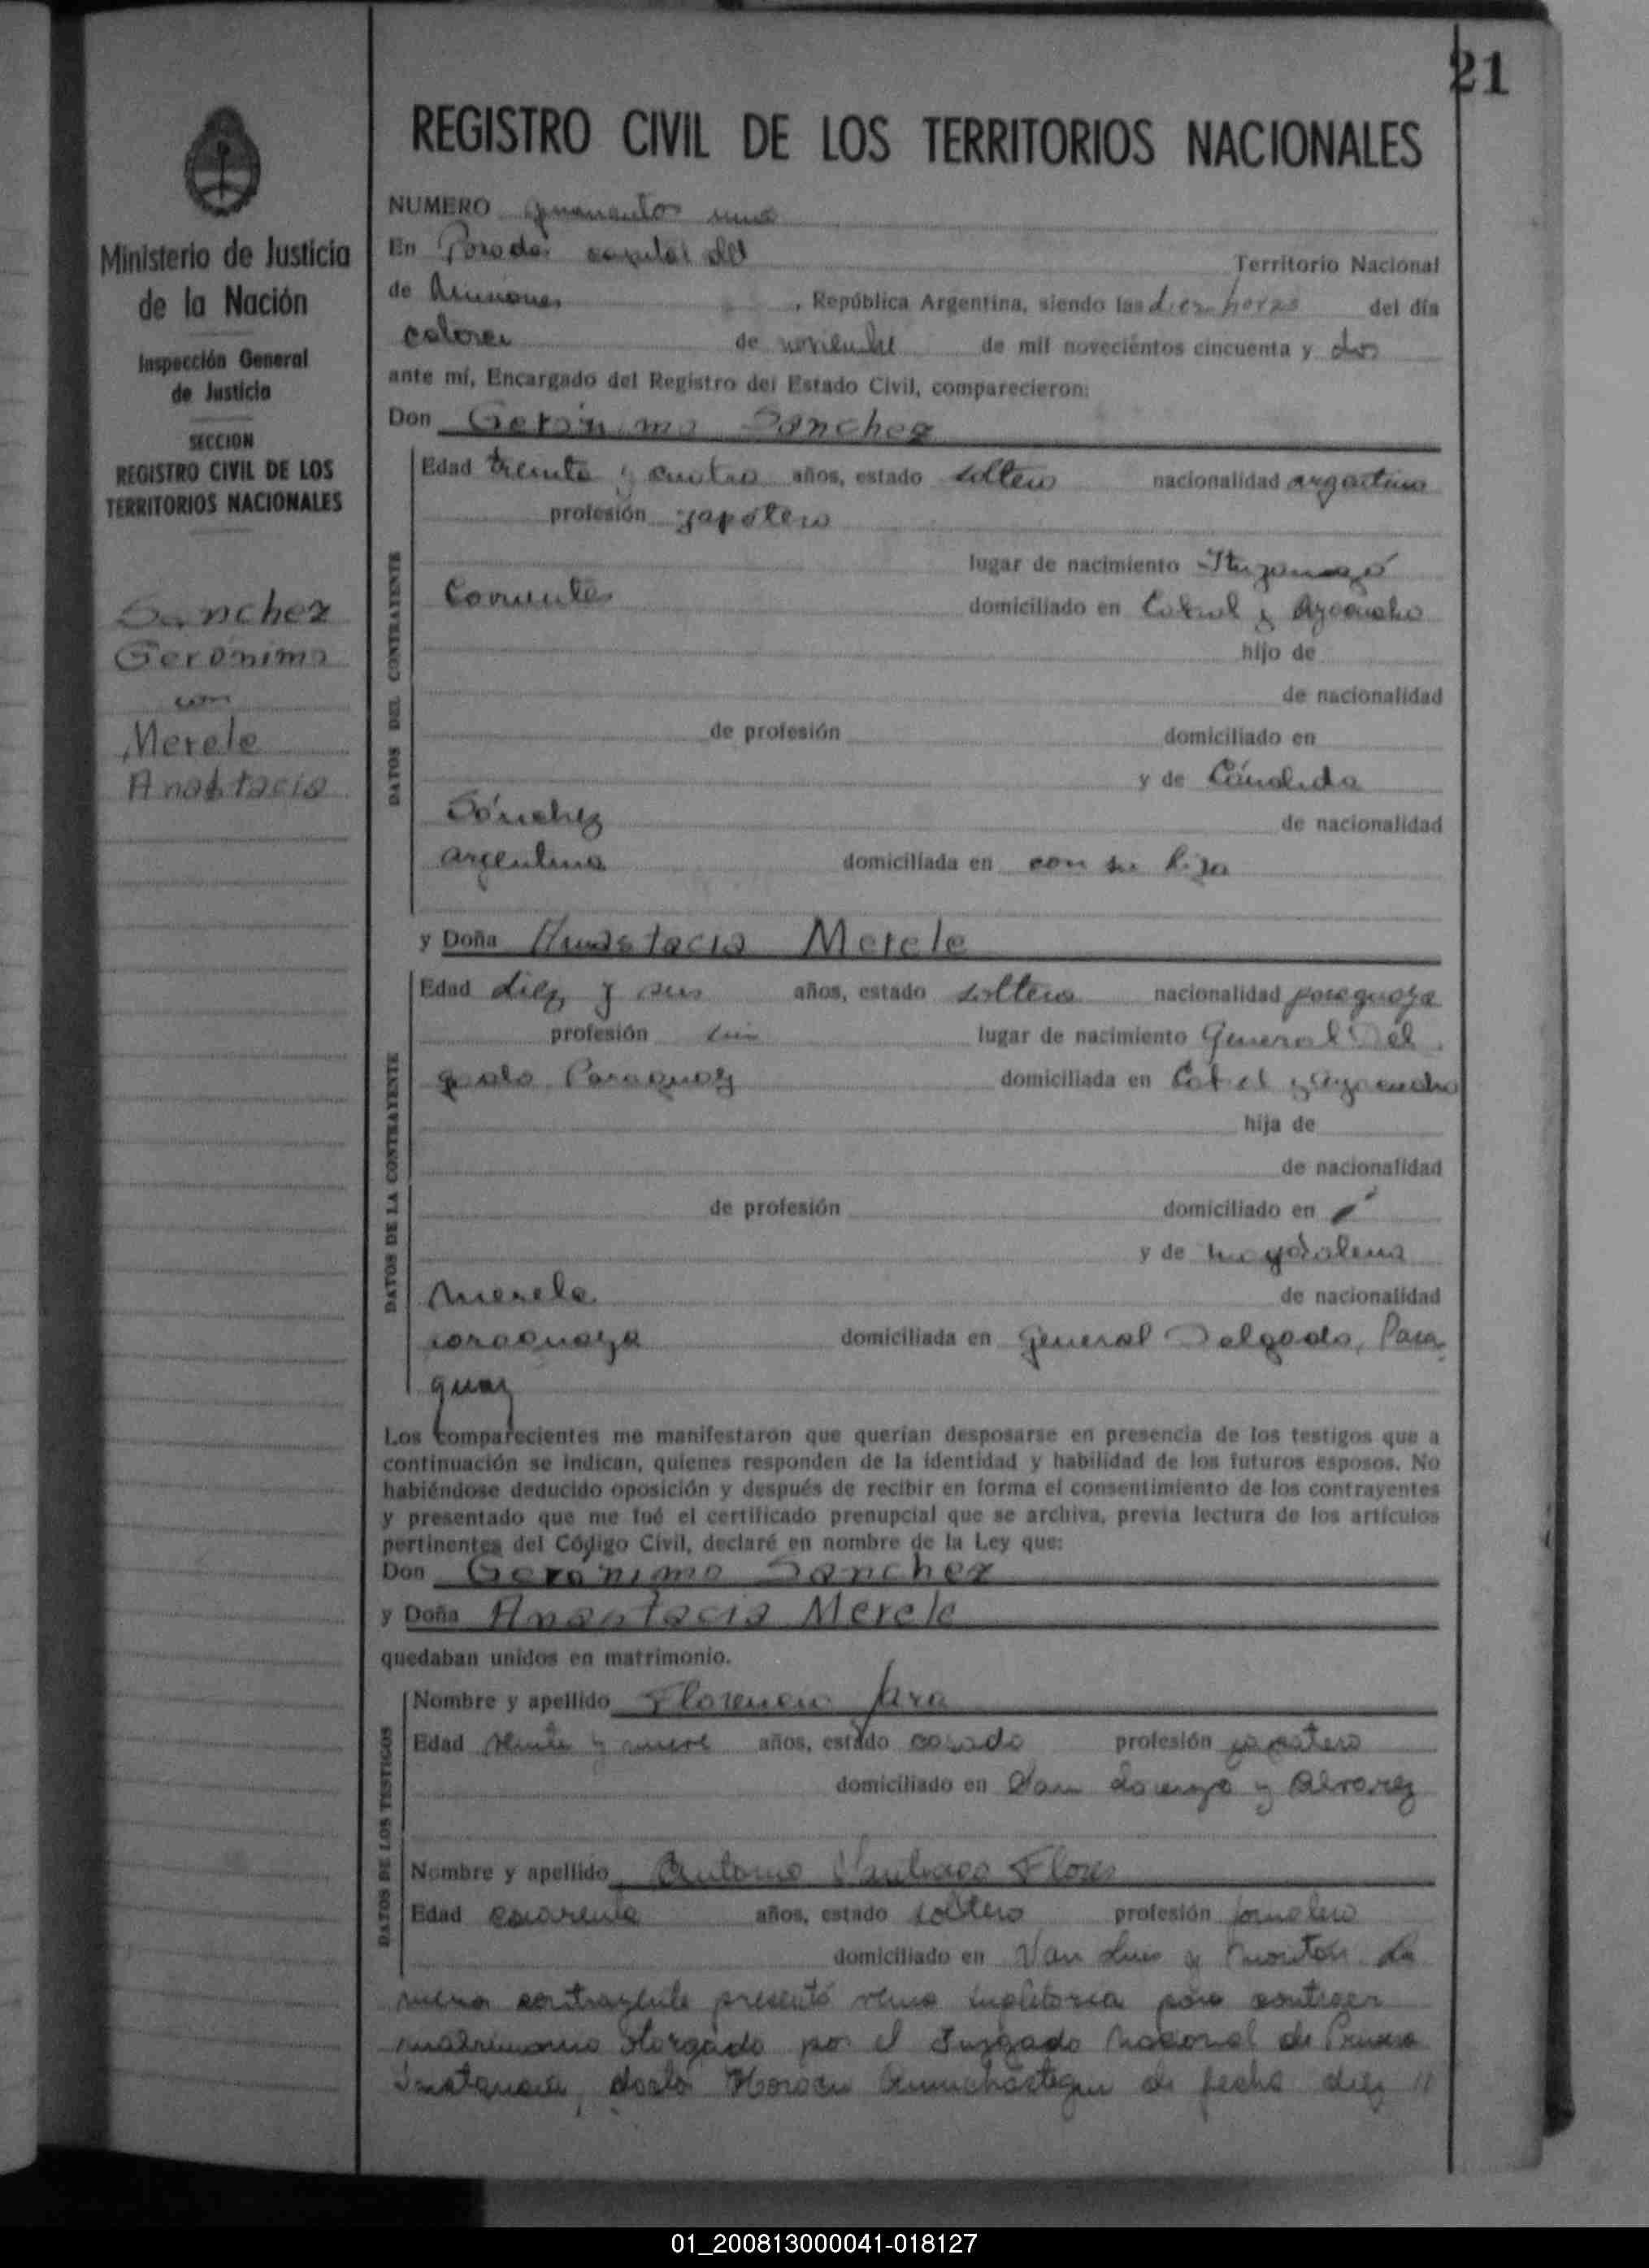 21
REGISTRO CIVIL DE LOS TERRITORIOS NACIONALES
Ministerio de Justicia
de la Nación
Inspección General
de Justicia
SECCION
REGISTRO CIVIL DE LOS
TERRITORIOS NACIONALES
Sanchez
Gerónimo
con
Merele
Anastacia
NUMERO quinientos uno
En Posadas capital del Territorio Nacional
de Misiones, República Argentina, siendo las diez horas del día
catorce de noviembre de mil novecientos cincuenta y dos
ante mí, Encargado del Registro del Estado Civil, comparecieron:
Don Gerónimo Sanchez
DATOS DEL CONTRAYENTE
Edad treinta y cuatro años, estado soltero nacionalidad argentino
profesión zapatero
lugar de nacimiento Ituzaingó
Corrientes domiciliado en Cabral y Ayacucho
hijo de
de nacionalidad
de profesión domiciliado en
y de Cándida
Sánchez de nacionalidad
argentina domiciliada en con su hijo
y Doña Anastacia Merele
DATOS DE LA CONTRAYENTE
Edad diez y seis años, estado soltera nacionalidad paraguaya
profesión sin lugar de nacimiento General Del
gado Paraguay domiciliada en Cabral y Ayacucho
hija de
de nacionalidad
de profesión domiciliado en
y de Magdalena
Merele de nacionalidad
paraguaya domiciliada en General Delgado, Para
guay
Los comparecientes me manifestaron que querían desposarse en presencia de los testigos que a
continuación se indican, quienes responden de la identidad y habilidad de los futuros esposos. No
habiéndose deducido oposición y después de recibir en forma el consentimiento de los contrayentes
y presentado que me fué el certificado prenupcial que se archiva, previa lectura de los artículos
pertinentes del Código Civil, declaré en nombre de la Ley que:
Don Gerónimo Sanchez
y Doña Anastacia Merele
quedaban unidos en matrimonio.
DATOS DE LOS TESTIGOS
Nombre y apellido Florencio Jara
Edad y nueve años, estado casado profesión zapatero
domiciliado en San Lorenzo y Alvarez
Nombre y apellido Antonio Santiago Flores
Edad cuarenta años, estado soltero profesión jornalero
domiciliado en San Luis y La
menor contrayente presentó venia supletoria para contraer
matrimonio otorgado por el Juzgado Nacional de Primera
Instancia, doctor de fecha diez //
01_200813000041-018127